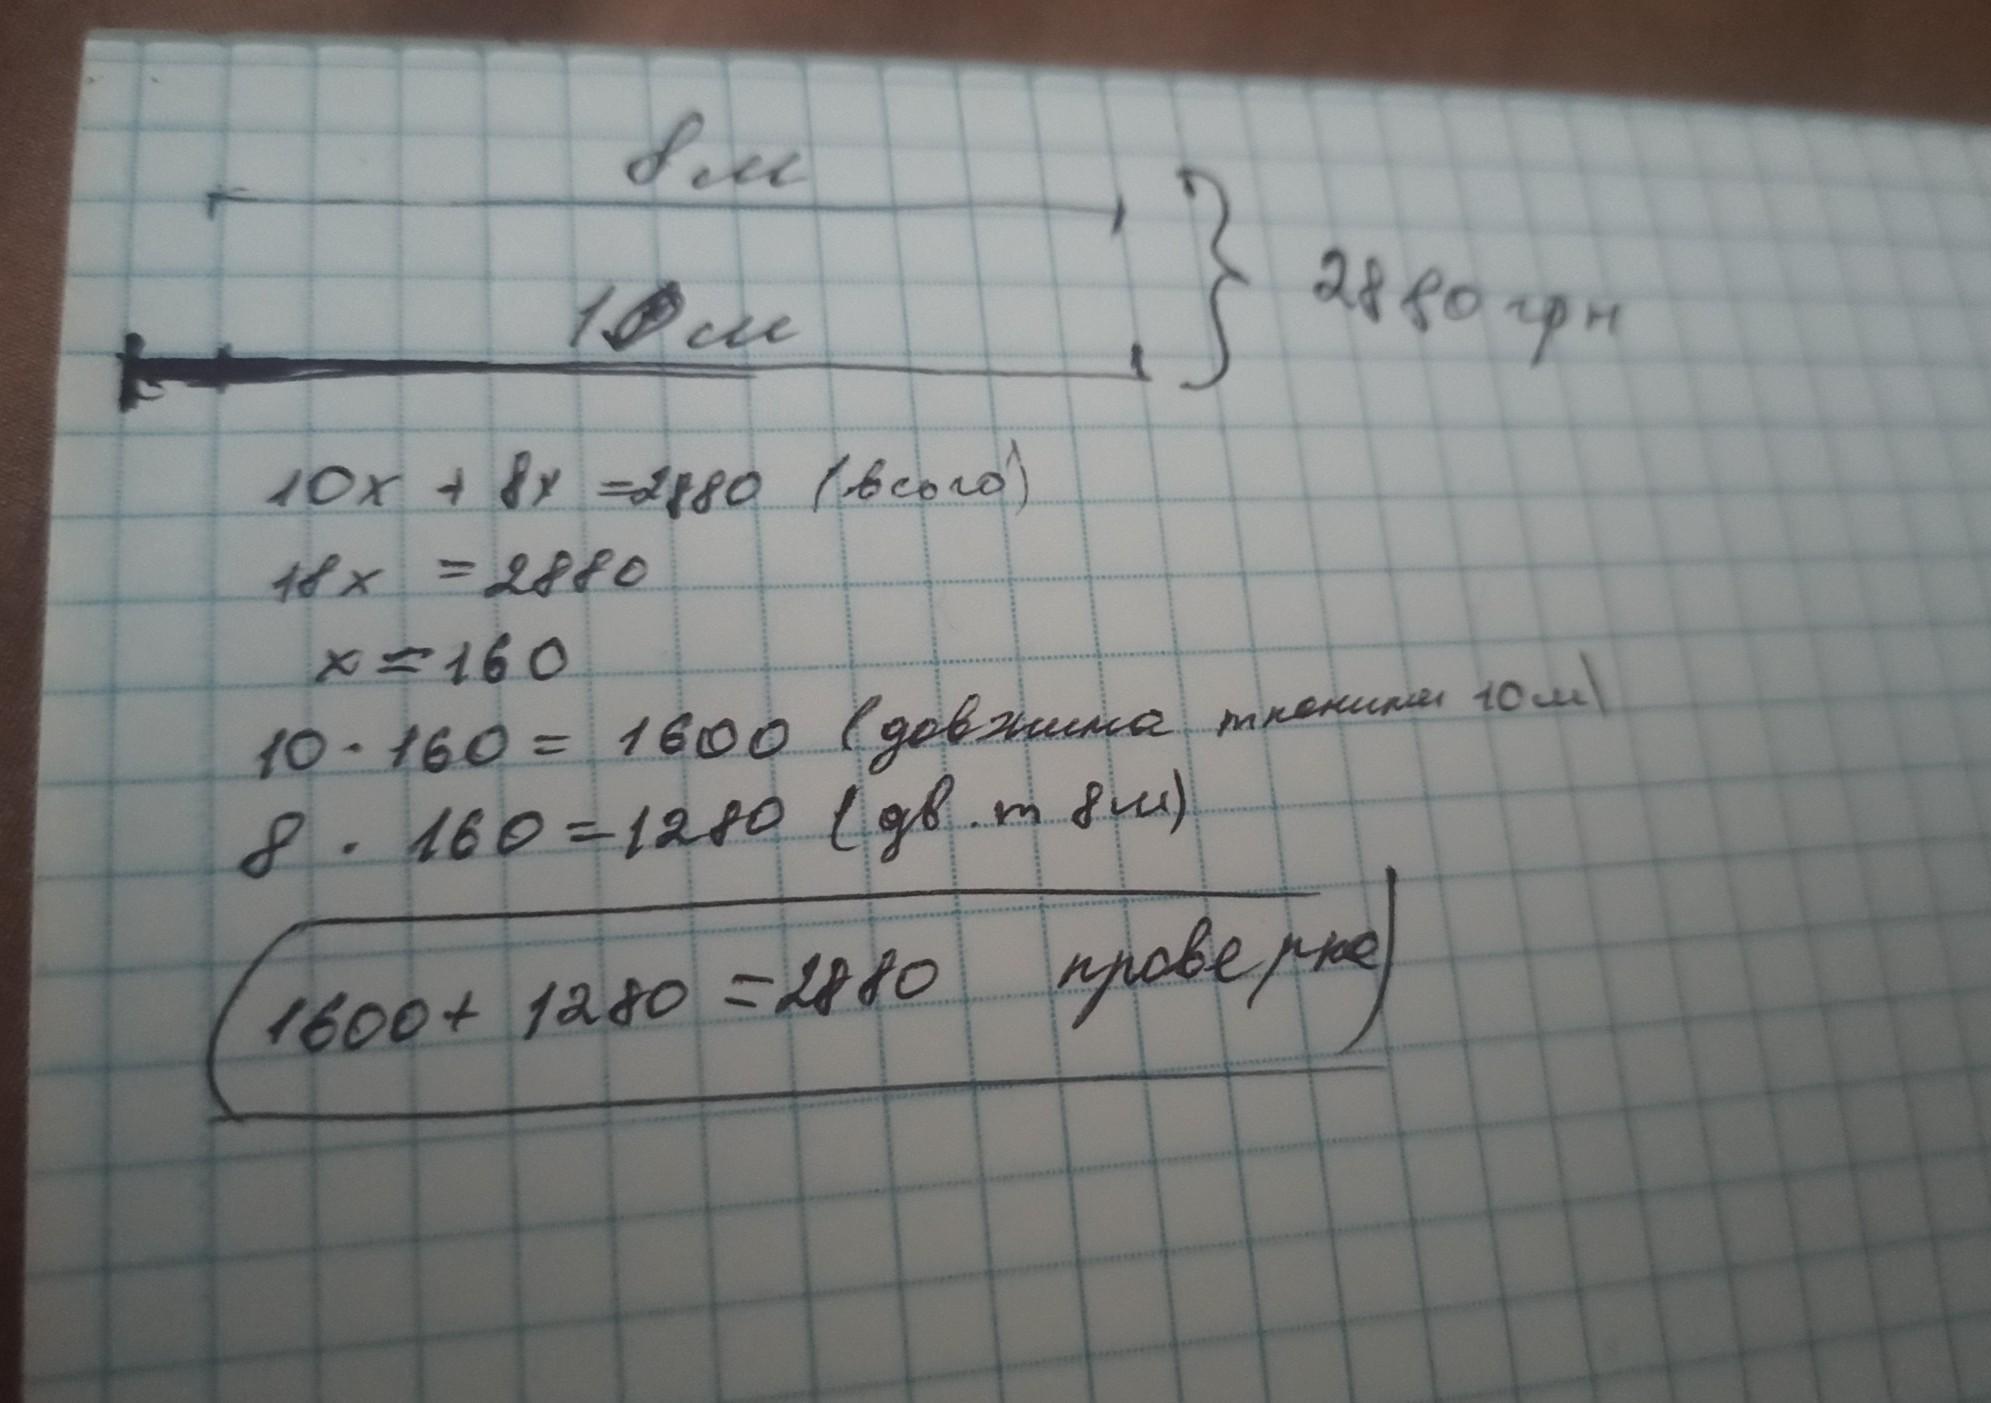 8м
10м
2880 грн
10х + 8х = 2880 (всого)
18х = 2880
х = 160
10 · 160 = 1600 (довжина тканини 10м)
8 · 160 = 1280 (дв. т 8м)
1600 + 1280 = 2880 проверка